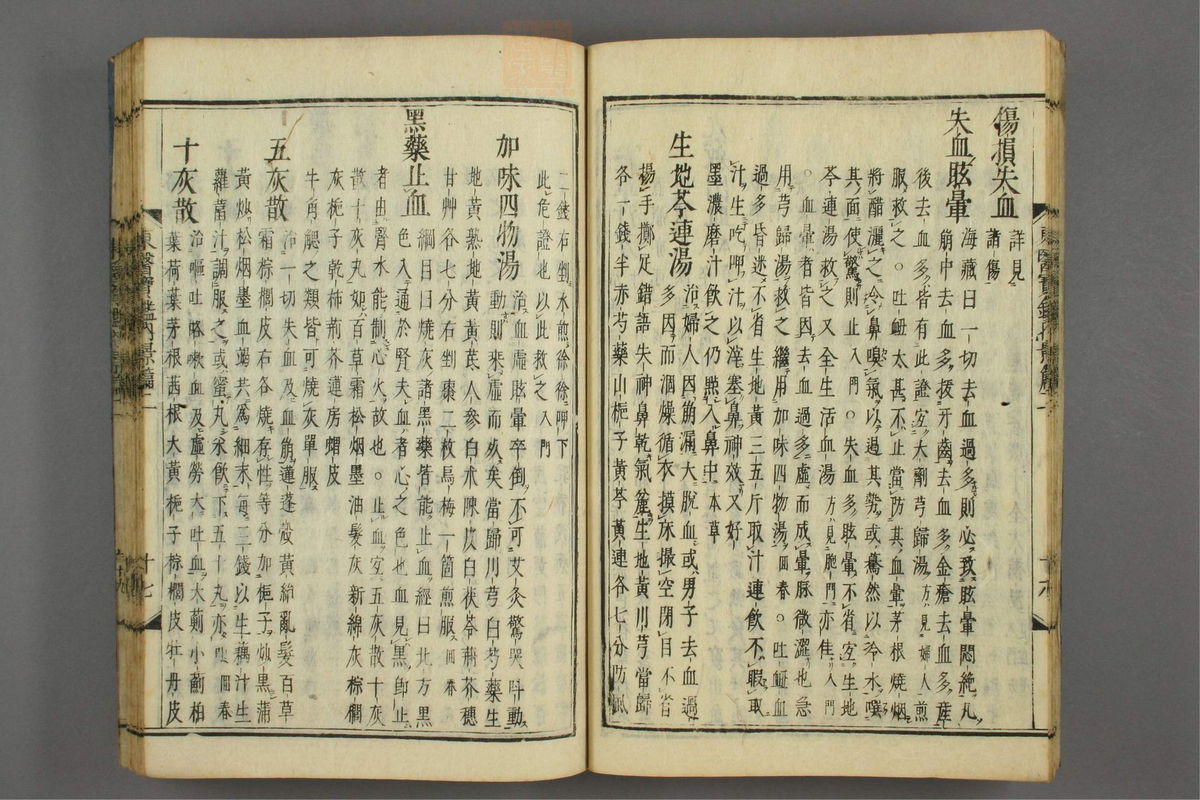 傷損失血
詳見諸傷
失血眩暈
海藏曰一切去血過多則必致眩暈悶絶凡
崩中去血多拔牙齒去血多金瘡去血多産
後去血多皆有此證宜大劑芎歸湯方見婦人煎
服救之○吐衄太甚不止當防其血暈茅根燒烟
將醋洒之令鼻嗅氣以過其勢或驀然以冷水噀
其面使驚則止入門○失血多眩暈不省宜生地
芩連湯救之又全生活血湯方見胞門亦佳入門
○血暈者皆因去血過多虛而成暈脉微澀也急
用芎歸湯救之繼用加味四物湯回春○吐衄血
過多昏迷不省生地黃三五斤取汁連飮不暇取
汁生吃呷汁以滓塞鼻神效又好
墨濃磨汁飮之仍㸃入鼻中本草
生地芩連湯
治婦人因崩漏大脫血或男子去血過
多因而涸燥循衣摸床撮空閉目不省
揚手擲足錯語失神鼻乾氣麄生地黃川芎當歸
各一錢半赤芍藥山梔子黃芩黃連各七分防風
二錢右剉水煎徐徐呷下
此危證也以此救之入門
加味四物湯
治血虛眩暈卒倒不可艾灸驚哭叫動
動則乘虛而死矣當歸川芎白芍藥生
地黃熟地黃黃芪人參白朮陳皮白茯苓荊芥穗
甘艸各七分右剉棗二枚烏梅一箇煎服回春
黑藥止血
綱目曰燒灰諸黑藥皆能止血經曰北方黑
色入通於腎夫血者心之色也血見黑卽止
者由腎水能制心火故也○止血宜五灰散十灰
散十灰丸如百草霜松烟墨油髮灰新綿灰棕櫚
灰梔子乾柿荊芥蓮房蝟皮
牛角䚡之類皆可燒灰單服
五灰散
治一切失血及血崩蓮蓬殼黃絹亂髮百草
霜棕櫚皮右各燒存性等分加梔子炒黑蒲
黃炒松烟墨血竭共爲細末每三錢以生藕汁生
蘿葍汁調服之或蜜丸米飮下五十丸亦可回春
十灰散
治嘔吐咯嗽血及虛勞大吐血大薊小薊栢
葉荷葉茅根茜根大黃梔子棕櫚皮牡丹皮
東醫寶鑑內景篇二
十六
東醫寶鑑內景篇二
十七